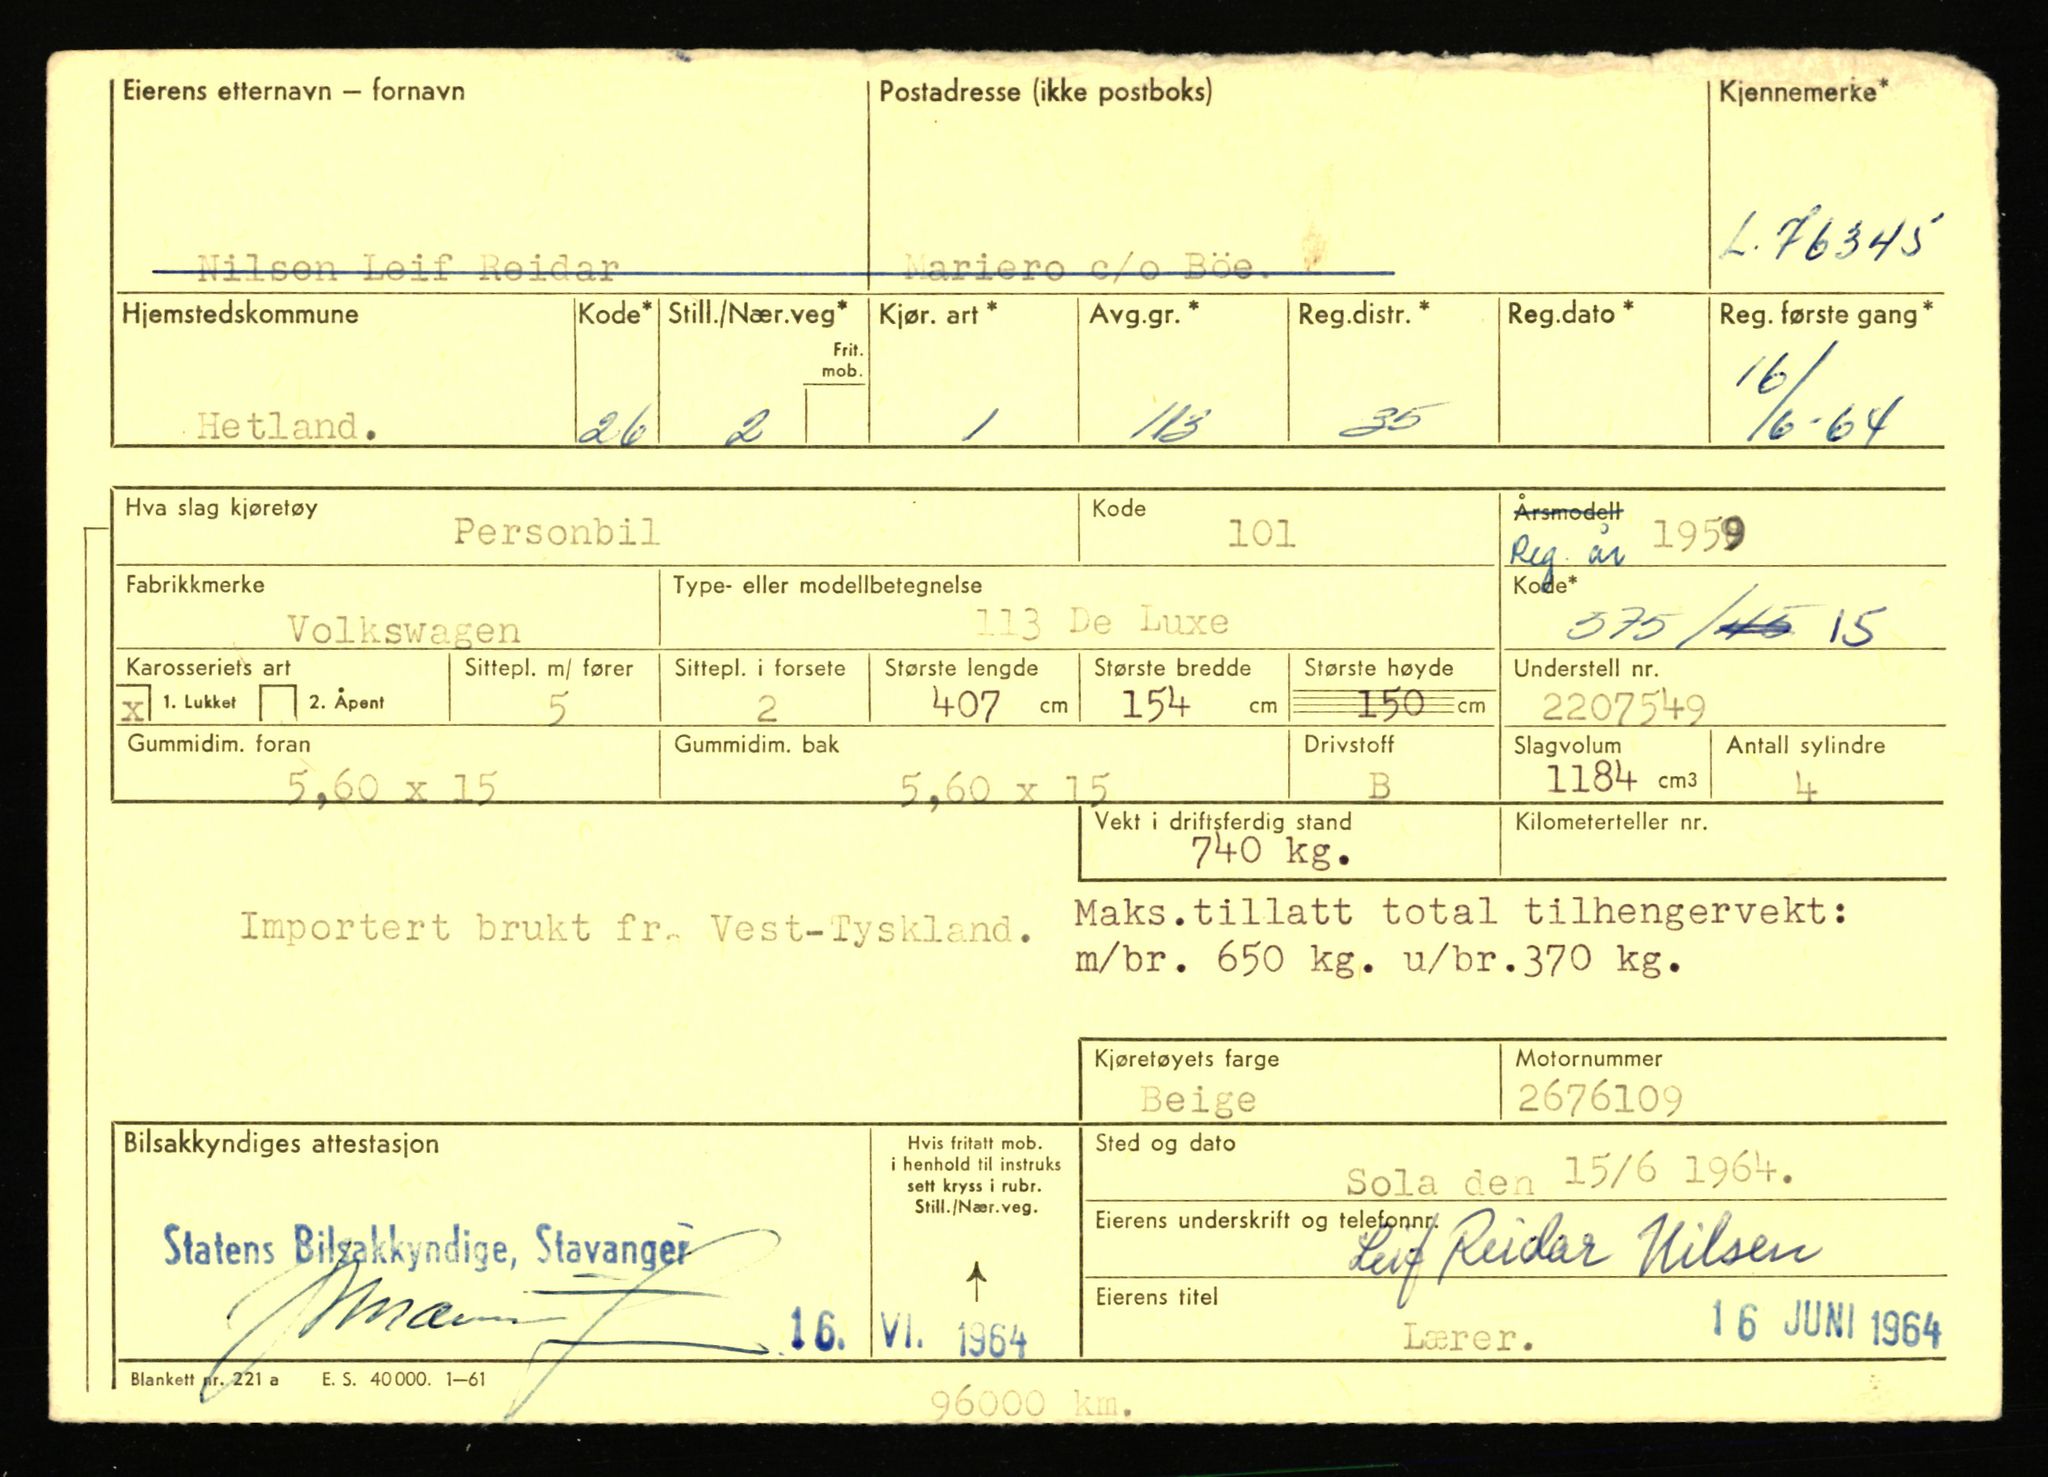 Eierens etternavn — fornavn
Postadresse (ikke postboks)
Kjennemerke*
Nilsen Leif Reidar
Mariero c/o Böe.
L. 76345
Hjemstedskommune
Kode*
Still./Nær.veg*
Frit.
mob.
Kjør. art *
Avg.gr. *
Reg.distr. *
Reg.dato *
Reg. første gang*
Hetland.
26
2
1
113
35
16/6-64
Hva slag kjøretøy
Personbil
Kode
101
Årsmodell
Reg. år
1959
Fabrikkmerke
Volkswagen
Type- eller modellbetegnelse
113 De Luxe
Kode*
575/45 15
Karosseriets art
x 1. Lukket 2. Åpent
Sittepl. m/ fører
5
Sittepl. i forsete
2
Største lengde
407 cm
Største bredde
154 cm
Største høyde
150 cm
Understell nr.
2207549
Gummidim. foran
5,60 x 15
Gummidim. bak
5,60 x 15
Drivstoff
B
Slagvolum
1184 cm3
Antall sylindre
4
Vekt i driftsferdig stand
740 kg.
Kilometerteller nr.
Importert brukt fr. Vest-Tyskland.
Maks.tillatt total tilhengervekt:
m/br. 650 kg. u/br.370 kg.
Kjøretøyets farge
Beige
Motornummer
2676109
Bilsakkyndiges attestasjon
Statens Bilsakkyndige, Stavanger
16. VI. 1964
Hvis fritatt mob.
i henhold til instruks
sett kryss i rubr.
Still./Nær.veg.
Sted og dato
Sola den 15/6 1964.
Eierens underskrift og telefonnr.
Leif Reidar Nilsen
Eierens titel
Lærer.
16 JUNI 1964
Blankett nr. 221 a E. S. 40 000. 1—61
96000 km.